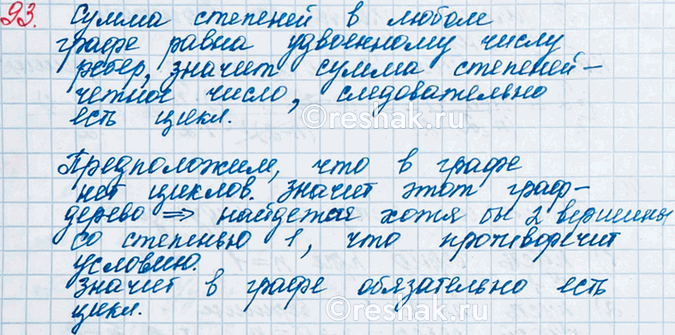 93. Сумма степеней в любом
графе равна удвоенному числу
ребер, значит сумма степеней-
четное число, следовательно
есть цикл.
©reshak.ru
Предположим, что в графе
нет циклов. Значит этот граф-
дерево ⇒ найдется хотя бы 2 вершины
со степенью 1, что противоречит
условию.
Значит в графе обязательно есть
цикл.
©reshak.ru